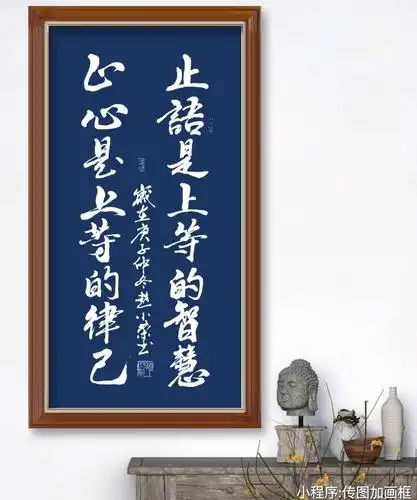 止語是上等的智慧
止心是上等的律己
歲在庚子仲冬趙小榮书
小程序:传图加画框